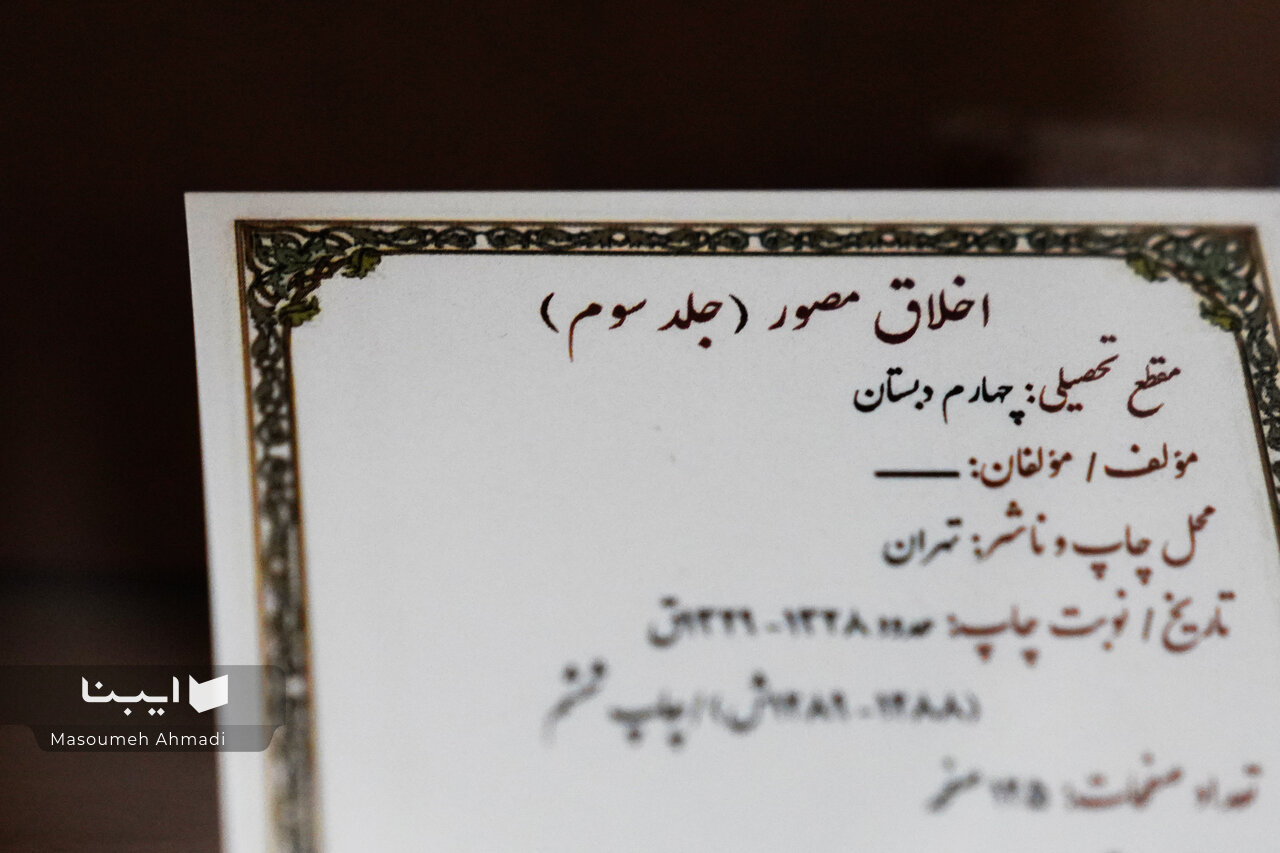 اخلاق مصور (جلد سوم)
مقطع تحصیلی: چهارم دبستان
مؤلف / مؤلفان: ——
محل چاپ و ناشر: تهران
تاریخ / نوبت چاپ: حدود ۱۳۲۸-۱۳۲۹ق
(۱۲۸۸-۱۲۸۹ش) / چاپ ششم
تعداد صفحات: ۱۲۵ صفحه
ایبنا
Masoumeh Ahmadi